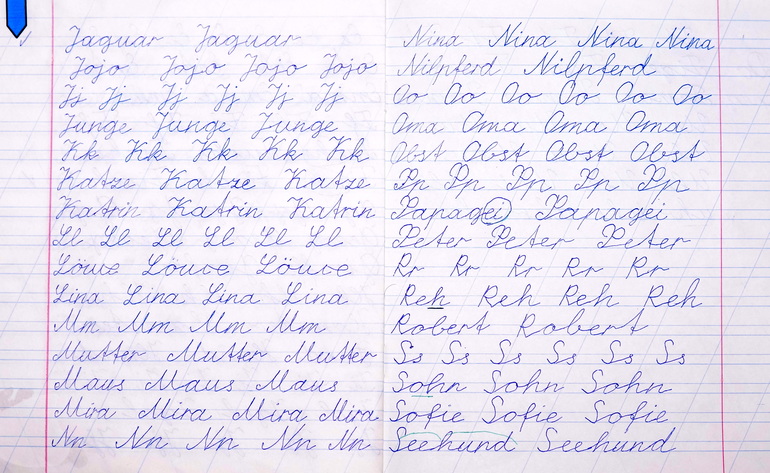 Jaguar Jaguar
Jojo Jojo Jojo Jojo
Jj Jj Jj Jj Jj Jj
Junge Junge Junge
Kk Kk Kk Kk Kk
Katze Katze Katze
Katrin Katrin Katrin
Ll Ll Ll Ll Ll Ll
Löwe Löwe Löwe
Lina Lina Lina Lina
Mm Mm Mm Mm
Mutter Mutter Mutter
Maus Maus Maus
Mira Mira Mira Mira
Nn Nn Nn Nn Nn
Nina Nina Nina Nina
Nilpferd Nilpferd
Oo Oo Oo Oo Oo Oo
Oma Oma Oma Oma
Obst Obst Obst Obst
Pp Pp Pp Pp Pp
Papagei Papagei
Peter Peter Peter
Rr Rr Rr Rr Rr
Reh Reh Reh Reh
Robert Robert
Ss Ss Ss Ss Ss Ss
Sohn Sohn Sohn
Sofie Sofie Sofie
Seehund Seehund